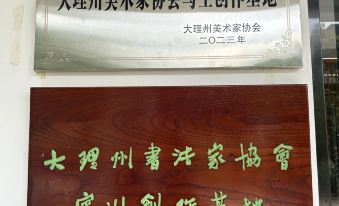 大理州美术家协会写生创作基地
大理州美术家协会
二〇二三年
大理州書法家協會
賓川創作基地